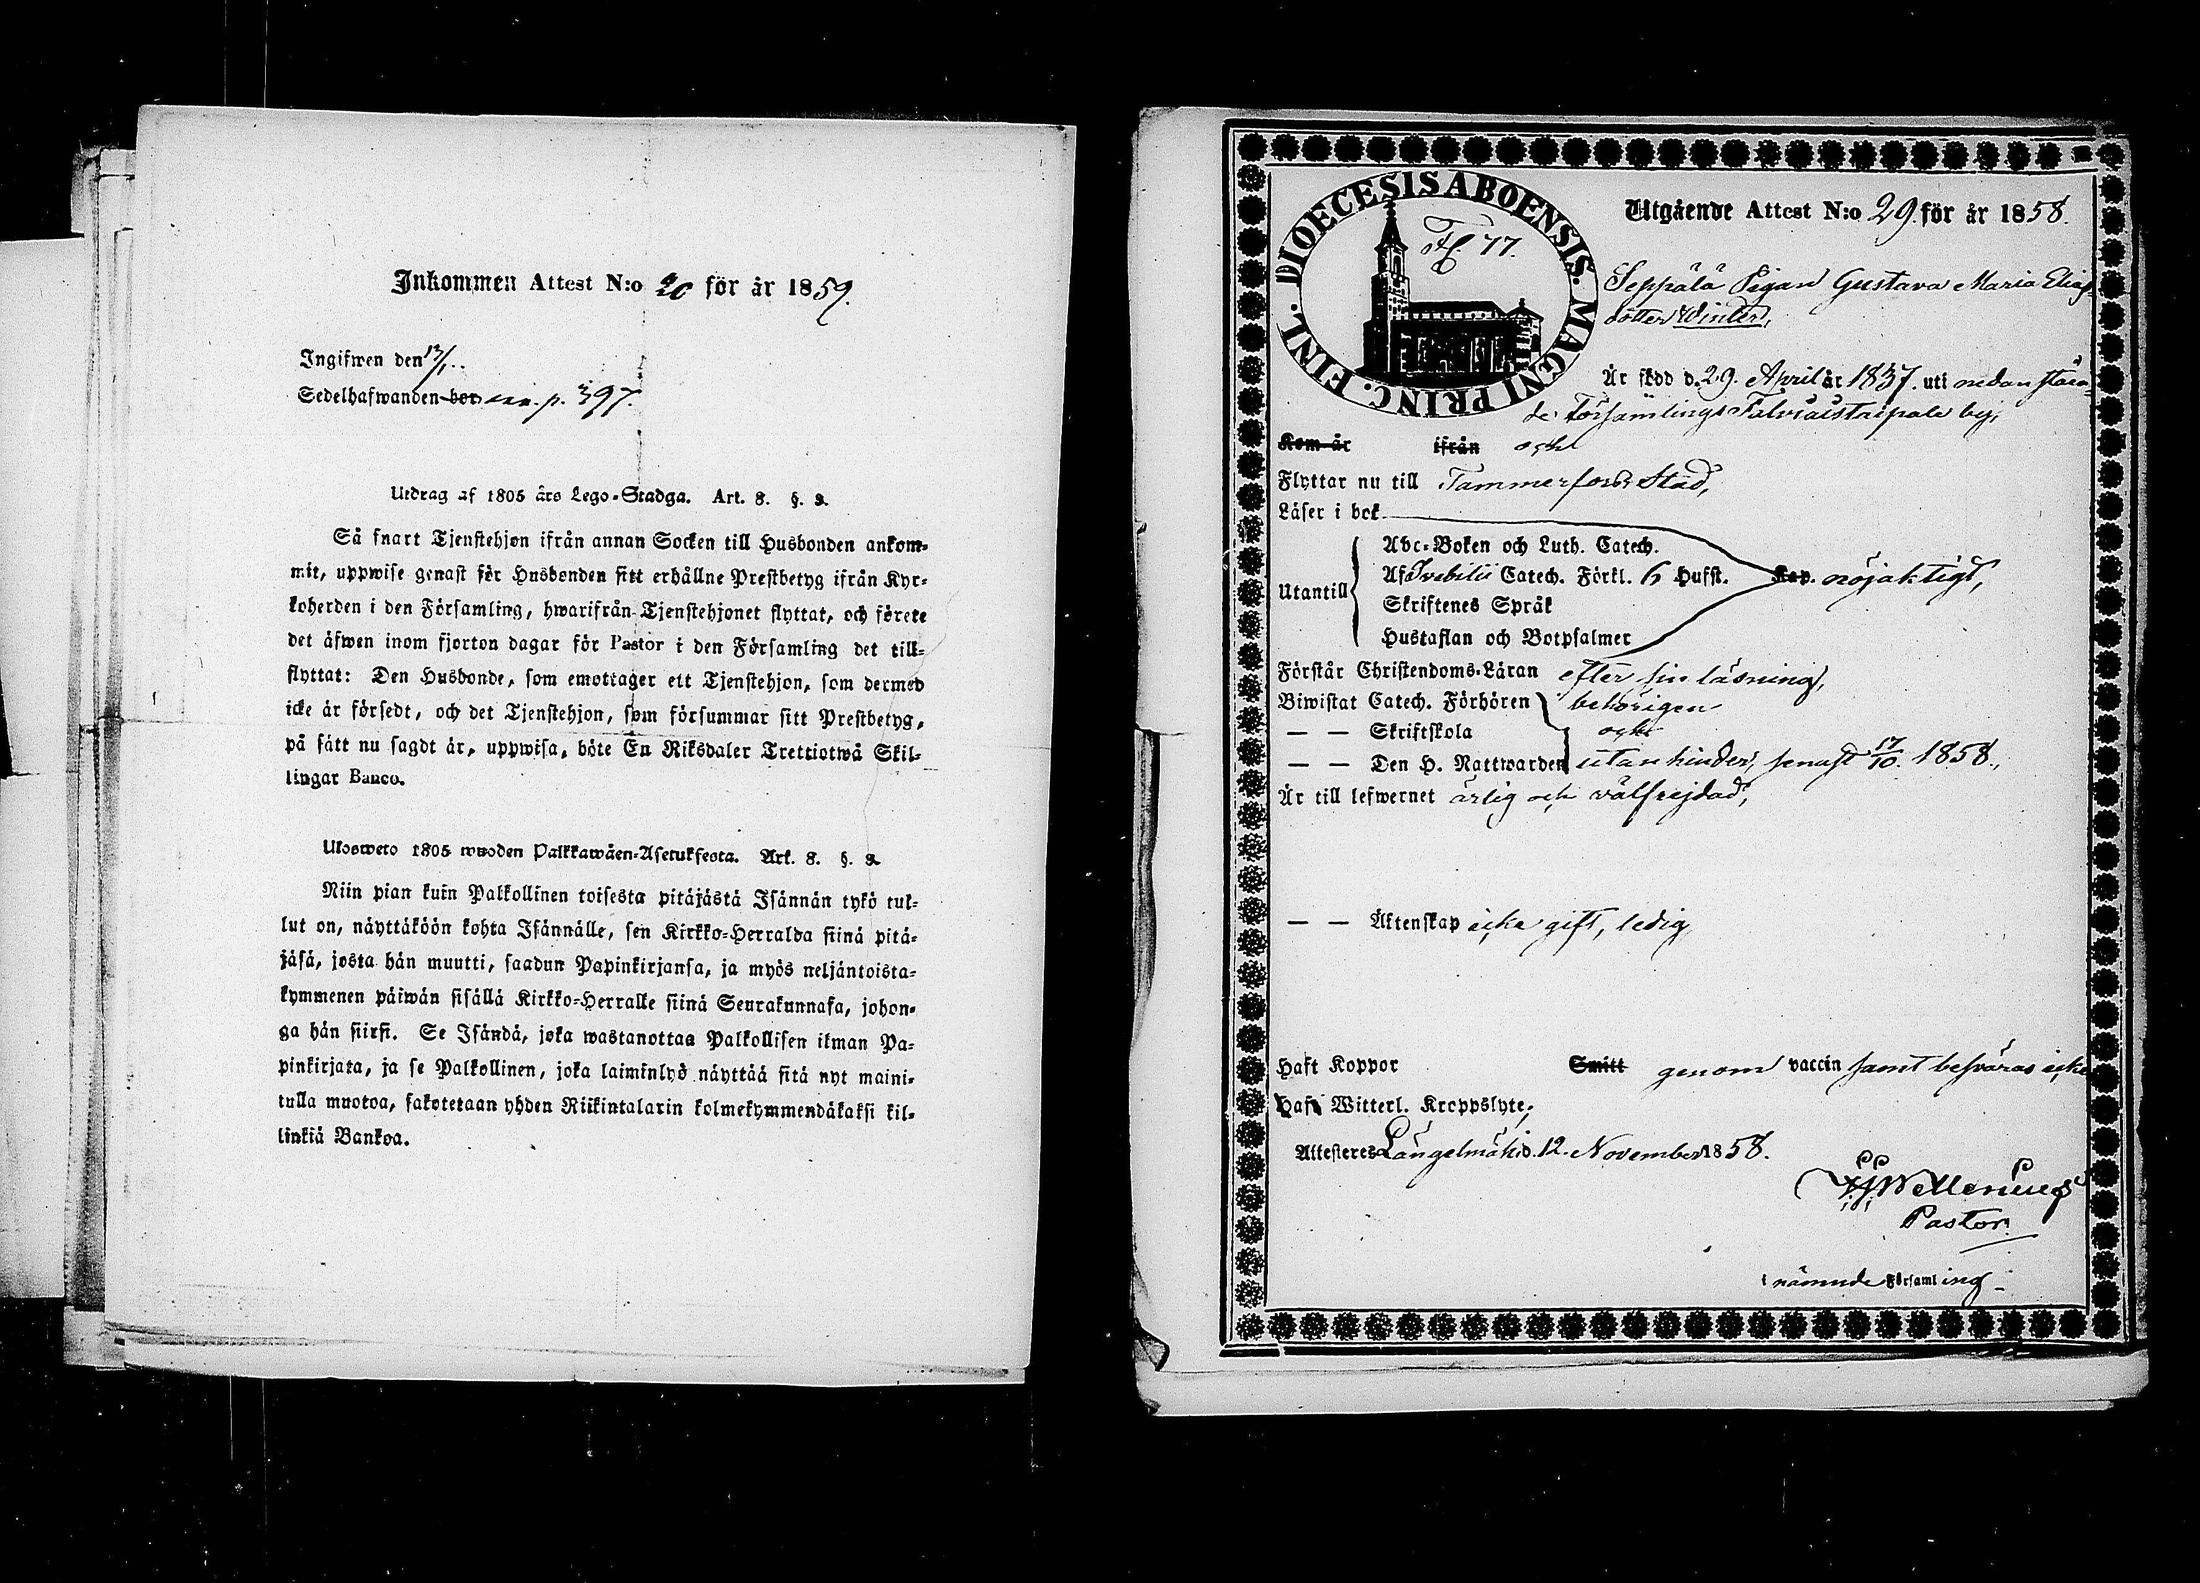 Inkommen Attest N:o 20 för år 1859.
Ingifwen den 13/1.
Sedelhafwanden bor p. 397.
Utdrag af 1805 års Lego-Stadga. Art. 8. §. 9.
Så snart Tjenstehjon ifrån annan Socken till Husbonden ankom-
mit, uppwise genast för Husbonden sitt erhållne Prestbetyg ifrån Kyr-
koherden i den Församling, hwarifrån Tjenstehjonet flyttat, och förete
det äfwen inom fjorton dagar för Pastor i den Församling det till-
flyttat: Den Husbonde, som emottager ett Tjenstehjon, som dermed
icke är försedt, och det Tjenstehjon, som försummar sitt Prestbetyg,
på sätt nu sagdt är, uppwisa, böte En Riksdaler Trettiotwå Skil-
lingar Banco.
Ulosweto 1805 wuoden Palkkawäen-Asetuksesta. Art. 8. §. 9.
Niin pian kuin Palkollinen toisesta pitäjästä Isännän tykö tul-
lut on, näyttäköön kohta Isännälle, sen Kirkko-Herralda siinä pitä-
jäsä, josta hän muutti, saadun Papinkirjansa, ja myös neljäntoista-
kymmenen päiwän sisällä Kirkko-Herralle siinä Seurakunnasa, johon-
ga hän siirsi. Se Isändä, joka wastanottaa Palkollisen ilman Pa-
pinkirjata, ja se Palkollinen, joka laiminlyö näyttää sitä nyt maini-
tulla muotoa, sakotetaan yhden Riikintalarin kolmekymmendäkaksi kil-
linkiä Bankoa.
DIOECESIS ABOENSIS. MAGNI PRINC. FINL.
77.
Utgående Attest N:o 29. för år 1858.
Seppälä Pigan Gustava Maria Elias
dotter Winter,
Är född d. 29. April år 1837. uti nedanståen
de Församlings Talviaistaipale by,
Kom år ifrån och
Flyttar nu till Tammerfors Stad,
Läser i bok
Abc-Boken och Luth. Catech.
Utantill Af Svebilii Catech. Förkl. 6 Hufst. Kap. nöjaktigt,
Skriftenes Språk
Hustaflan och Botpsalmer
Förstår Christendoms-Läran efter sin läsning,
Biwistat Catech. Förhören behörigen
— — Skriftskola och
— — Den H. Nattwarden utan hinder, senast 17/10. 1858.,
Är till lefwernet ärlig och välfrejdad,
— — Äktenskap icke gift, ledig
Haft Koppor Smitt genom vaccin samt besväras icke
Haft Witterl. Kroppslyte,
Attesteres Längelmäki d. 12. November 1858.
Pastor
i nämnde Församling